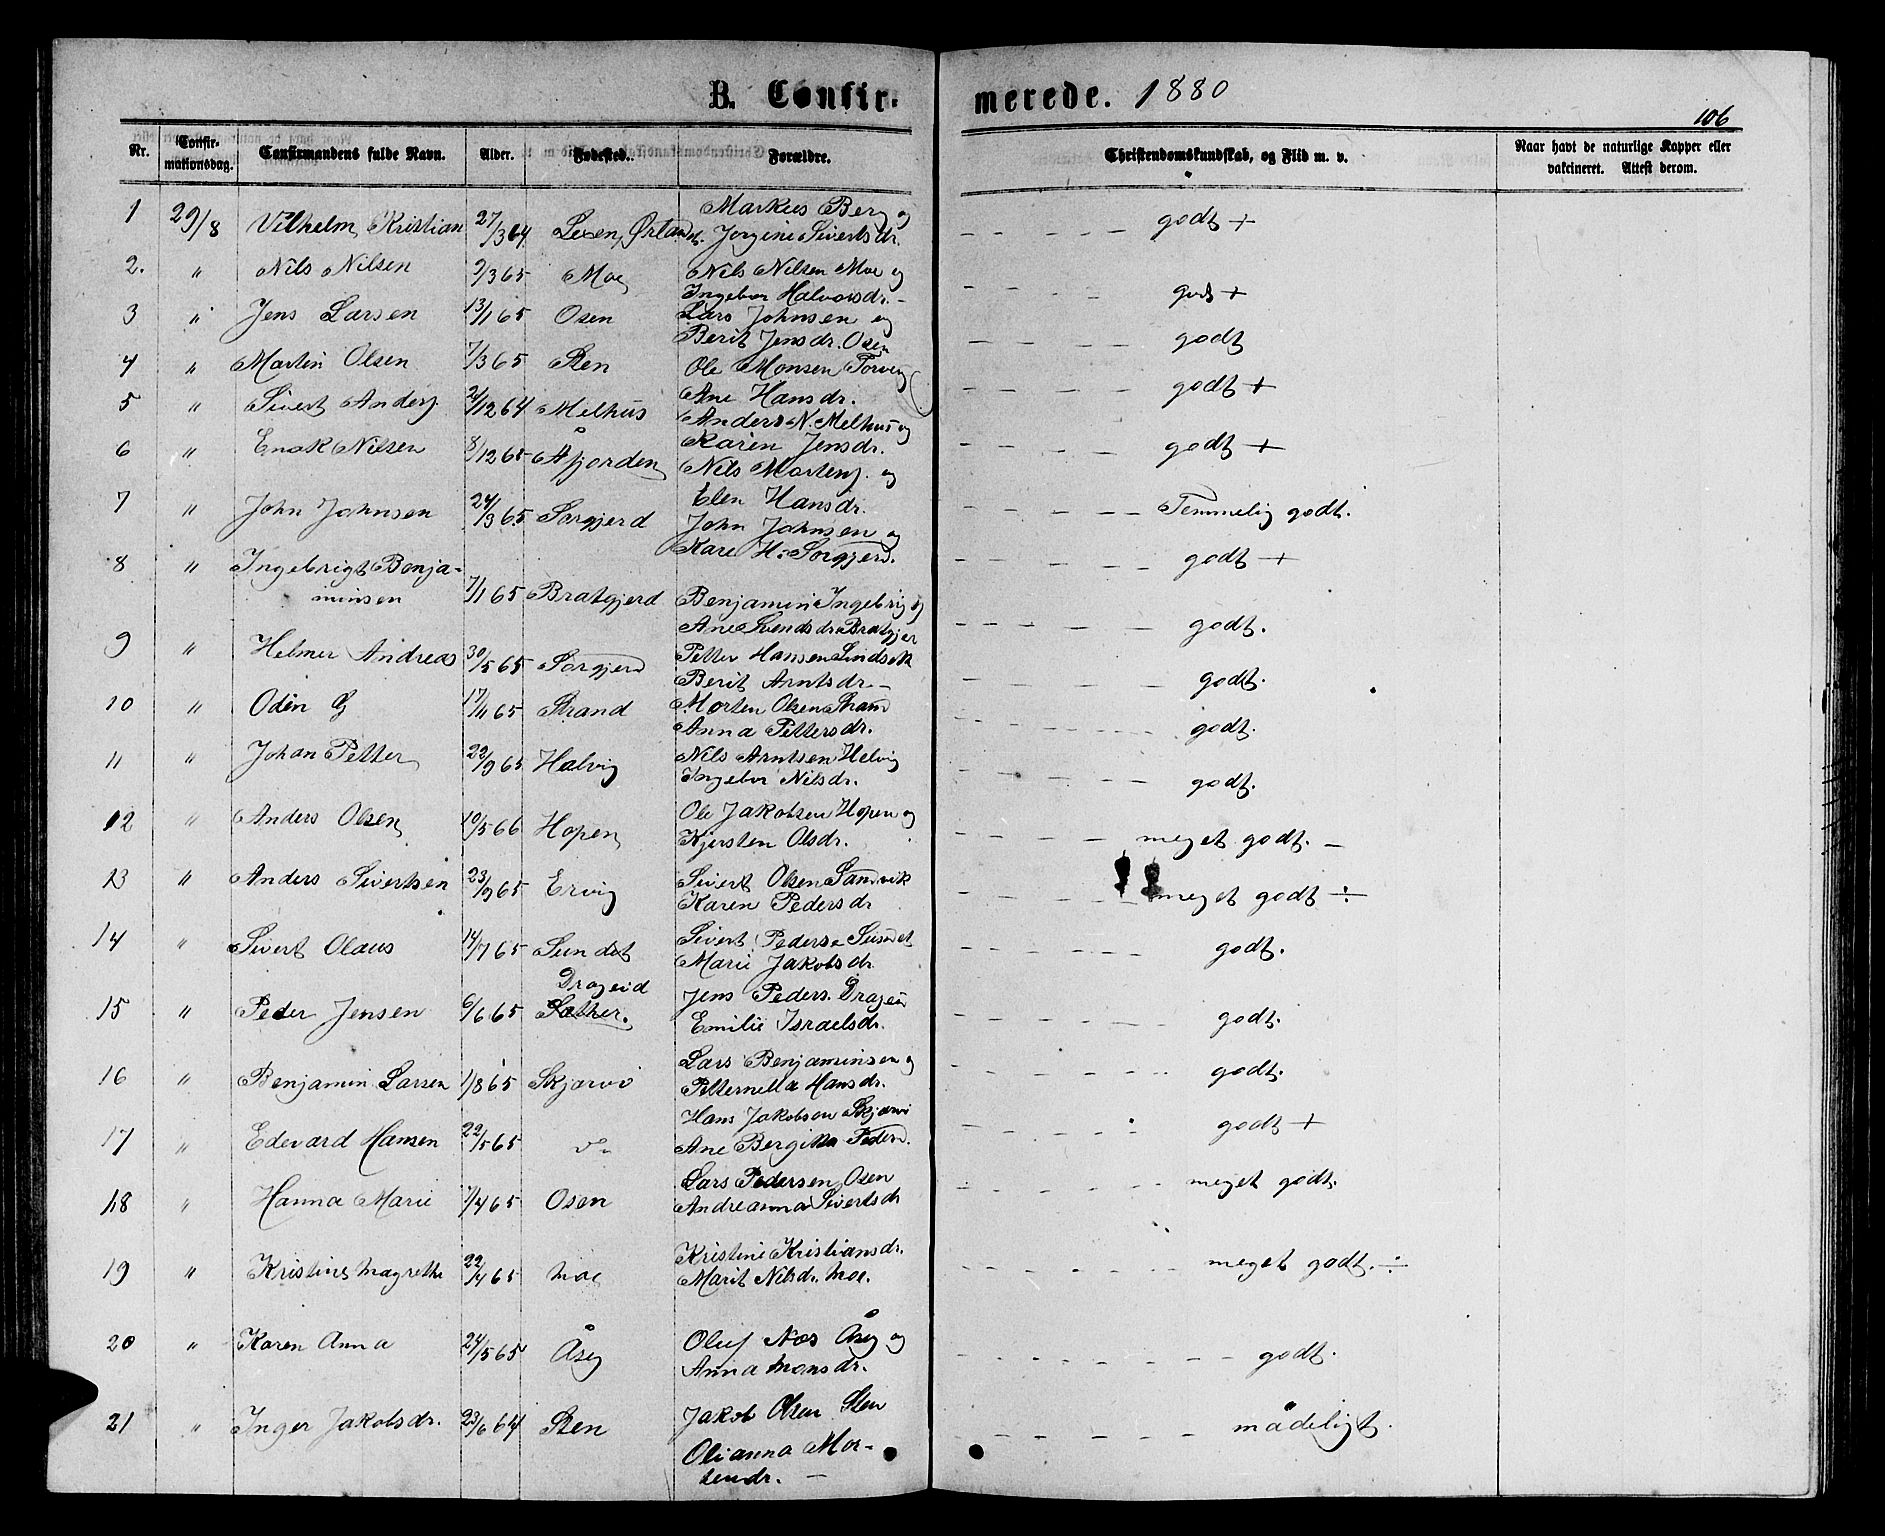 B. Confirmerede. 1880
106
Nr. Confirmationsdag. Confirmandens fulde Navn. Alder. Fødested. Forældre. Christendomskundskab, og Flid m. v. Naar havt de naturlige Kopper eller vakcineret. Attest derom.
1 29/8 Vilhelm Kristian 27/3 64 Ørland. Markus Berg og Jorgine Sivertsdr. godt +
2. " Nils Nilsen 9/3 65 Moe Nils Nilsen Moe og Ingebor Halvorsdr. godt +
3 " Jens Larsen 13/1 65 Osen Lars Johnsen og Berit Jensdr. Osen godt
4 " Martin Olsen 7/3 65 Sten Ole Monsen Ane Hansdr. godt +
5 " Sivert Andersen 2/12 64 Melhus Anders N. Melhus og Karen Jensdr. godt +
6 " Enok Nilsen 8/12 65 Åfjorden Nils Mortens. og Elen Hansdr. Temmelig godt.
7 " John Johnsen 24/9 65 Sørgjerd John Johnsen og Kare H. Sørgjerd. godt +
8 " Ingebrigt Benjaminsen 7/1 65 Bratgjerd Benjamin Ingebrig og Ane Svendsdr Bratgjer godt.
9 " Helmer Andreas 30/5 65 Sørgjerd Petter Hansen Lindsek Berit Arntsdr. godt.
10 " Odin G 17/11 65 Strand Morten Olsen Strand Anna Pettersdr. godt.
11 " Johan Petter 22/9 65 Halvig Nils Arntsen Helvig Ingebor Nilsdr. godt.
12 " Anders Olsen 10/5 66 Hopen Ole Jakobsen Hopen og Kjersten Olsdr. meget godt. –
13 " Anders Sivertsen 23/9 65 Ervig Sivert Olsen Sandvik Karen Pedersdr meget godt ÷
14 " Sivert Olaus 14/7 65 Sundet Sivert Peders. Sundet Marie Jakobsdr. godt.
15 " Peder Jensen 6/6 65 Drageid Sæther. Jens Peders. Drageid Emilie Israelsdr. godt.
16 " Benjamin Larsen 1/8 65 Skjærvø Lars Benjaminsen og Petternella Hansdr. godt.
17 " Edevard Hansen 22/5 65 do Hans Jakobsen Skjærvø Ane Bergitta Pedersd. godt +
18 " Hanna Marie 7/4 65 Osen Lars Pedersen Osen Andreanna Sivertsdr meget godt.
19 " Kristine Magrethe 22/4 65 Moe Kristine Kristiansdr. Marit Nilsdr. Moe. meget godt. ÷
20 " Karen Anna 24/5 65 Åsey Oluf Nos Åsey og Anna Monsdr. godt.
21 " Inger Jakobsdr. 23/6 64 Sten Jakob Olsen Sten Olianna Mortendr. – mådeligt.